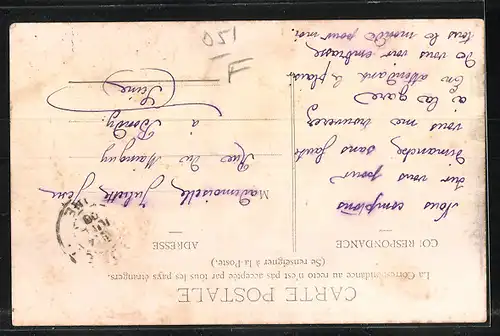 CARTE POSTALE
La Correspondance au recto n'est pas acceptée par tous les pays étrangers.
(Se renseigner à la Poste.)
CORRESPONDANCE
ADRESSE
Nous comptons
sur vous pour
dimanche sans faute
vous me trouverez
à la gare
En attendant le plaisir
de vous voir embrasse
tous le monde pour moi.
Mademoiselle Juliette
Rue du
à Bondy.
Seine
051
F